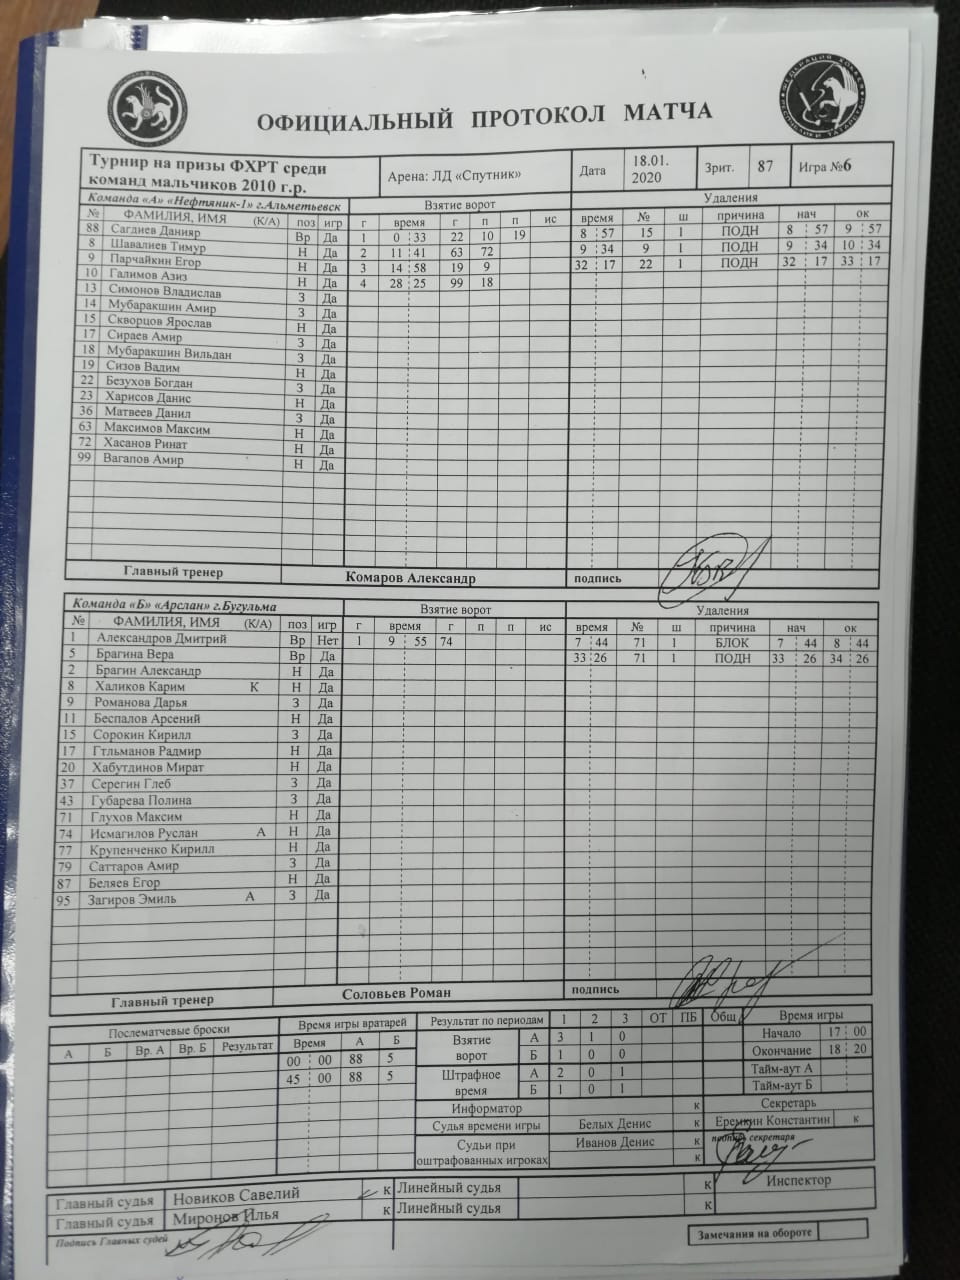 ОФИЦИАЛЬНЫЙ ПРОТОКОЛ МАТЧА
Турнир на призы ФХРТ среди команд мальчиков 2010 г.р. Арена: ЛД «Спутник» Дата 18.01.2020 Зрит. 87 Игра №6
Команда «А» «Нефтяник-1» г.Альметьевск Взятие ворот Удаления
№ ФАМИЛИЯ, ИМЯ (К/А) поз игр г время г п п ис время № ш причина нач ок
88 Сагдиев Данияр Вр Да 1 0 : 33 22 10 19 8 : 57 15 1 ПОДН 8 : 57 9 : 57
8 Шавалиев Тимур Н Да 2 11 : 41 63 72 9 : 34 9 1 ПОДН 9 : 34 10 : 34
9 Парчайкин Егор Н Да 3 14 : 58 19 9 32 : 17 22 1 ПОДН 32 : 17 33 : 17
10 Галимов Азиз Н Да 4 28 : 25 99 18
13 Симонов Владислав З Да
14 Мубаракшин Амир З Да
15 Скворцов Ярослав Н Да
17 Сираев Амир З Да
18 Мубаракшин Вильдан З Да
19 Сизов Вадим Н Да
22 Безухов Богдан З Да
23 Харисов Данис Н Да
36 Матвеев Данил З Да
63 Максимов Максим Н Да
72 Хасанов Ринат Н Да
99 Вагапов Амир Н Да
Главный тренер Комаров Александр подпись
Команда «Б» «Арслан» г.Бугульма Взятие ворот Удаления
№ ФАМИЛИЯ, ИМЯ (К/А) поз игр г время г п п ис время № ш причина нач ок
1 Александров Дмитрий Вр Нет 1 9 : 55 74 7 : 44 71 1 БЛОК 7 : 44 8 : 44
5 Брагина Вера Вр Да 33 : 26 71 1 ПОДН 33 : 26 34 : 26
2 Брагин Александр Н Да
8 Халиков Карим К Н Да
9 Романова Дарья З Да
11 Беспалов Арсений Н Да
15 Сорокин Кирилл З Да
17 Гтльманов Радмир Н Да
20 Хабутдинов Мират Н Да
37 Серегин Глеб З Да
43 Губарева Полина З Да
71 Глухов Максим Н Да
74 Исмагилов Руслан А Н Да
77 Крупенченко Кирилл Н Да
79 Саттаров Амир З Да
87 Беляев Егор Н Да
95 Загиров Эмиль А З Да
Главный тренер Соловьев Роман подпись
Послематчевые броски Время игры вратарей Результат по периодам 1 2 3 ОТ ПБ Общ Время игры
А Б Вр. А Вр. Б Результат Время А Б Взятие ворот А 3 1 0 Начало 17 : 00
00 : 00 88 5 Б 1 0 0 Окончание 18 : 20
45 : 00 88 5 Штрафное время А 2 0 1 Тайм-аут А
Б 1 0 1 Тайм-аут Б
Информатор к Секретарь
Судья времени игры Белых Денис к Еремкин Константин к
Судьи при оштрафованных игроках Иванов Денис к подпись секретаря
к
Главный судья Новиков Савелий к Линейный судья к Инспектор
Главный судья Миронов Илья к Линейный судья к
Подпись Главных судей Замечания на обороте